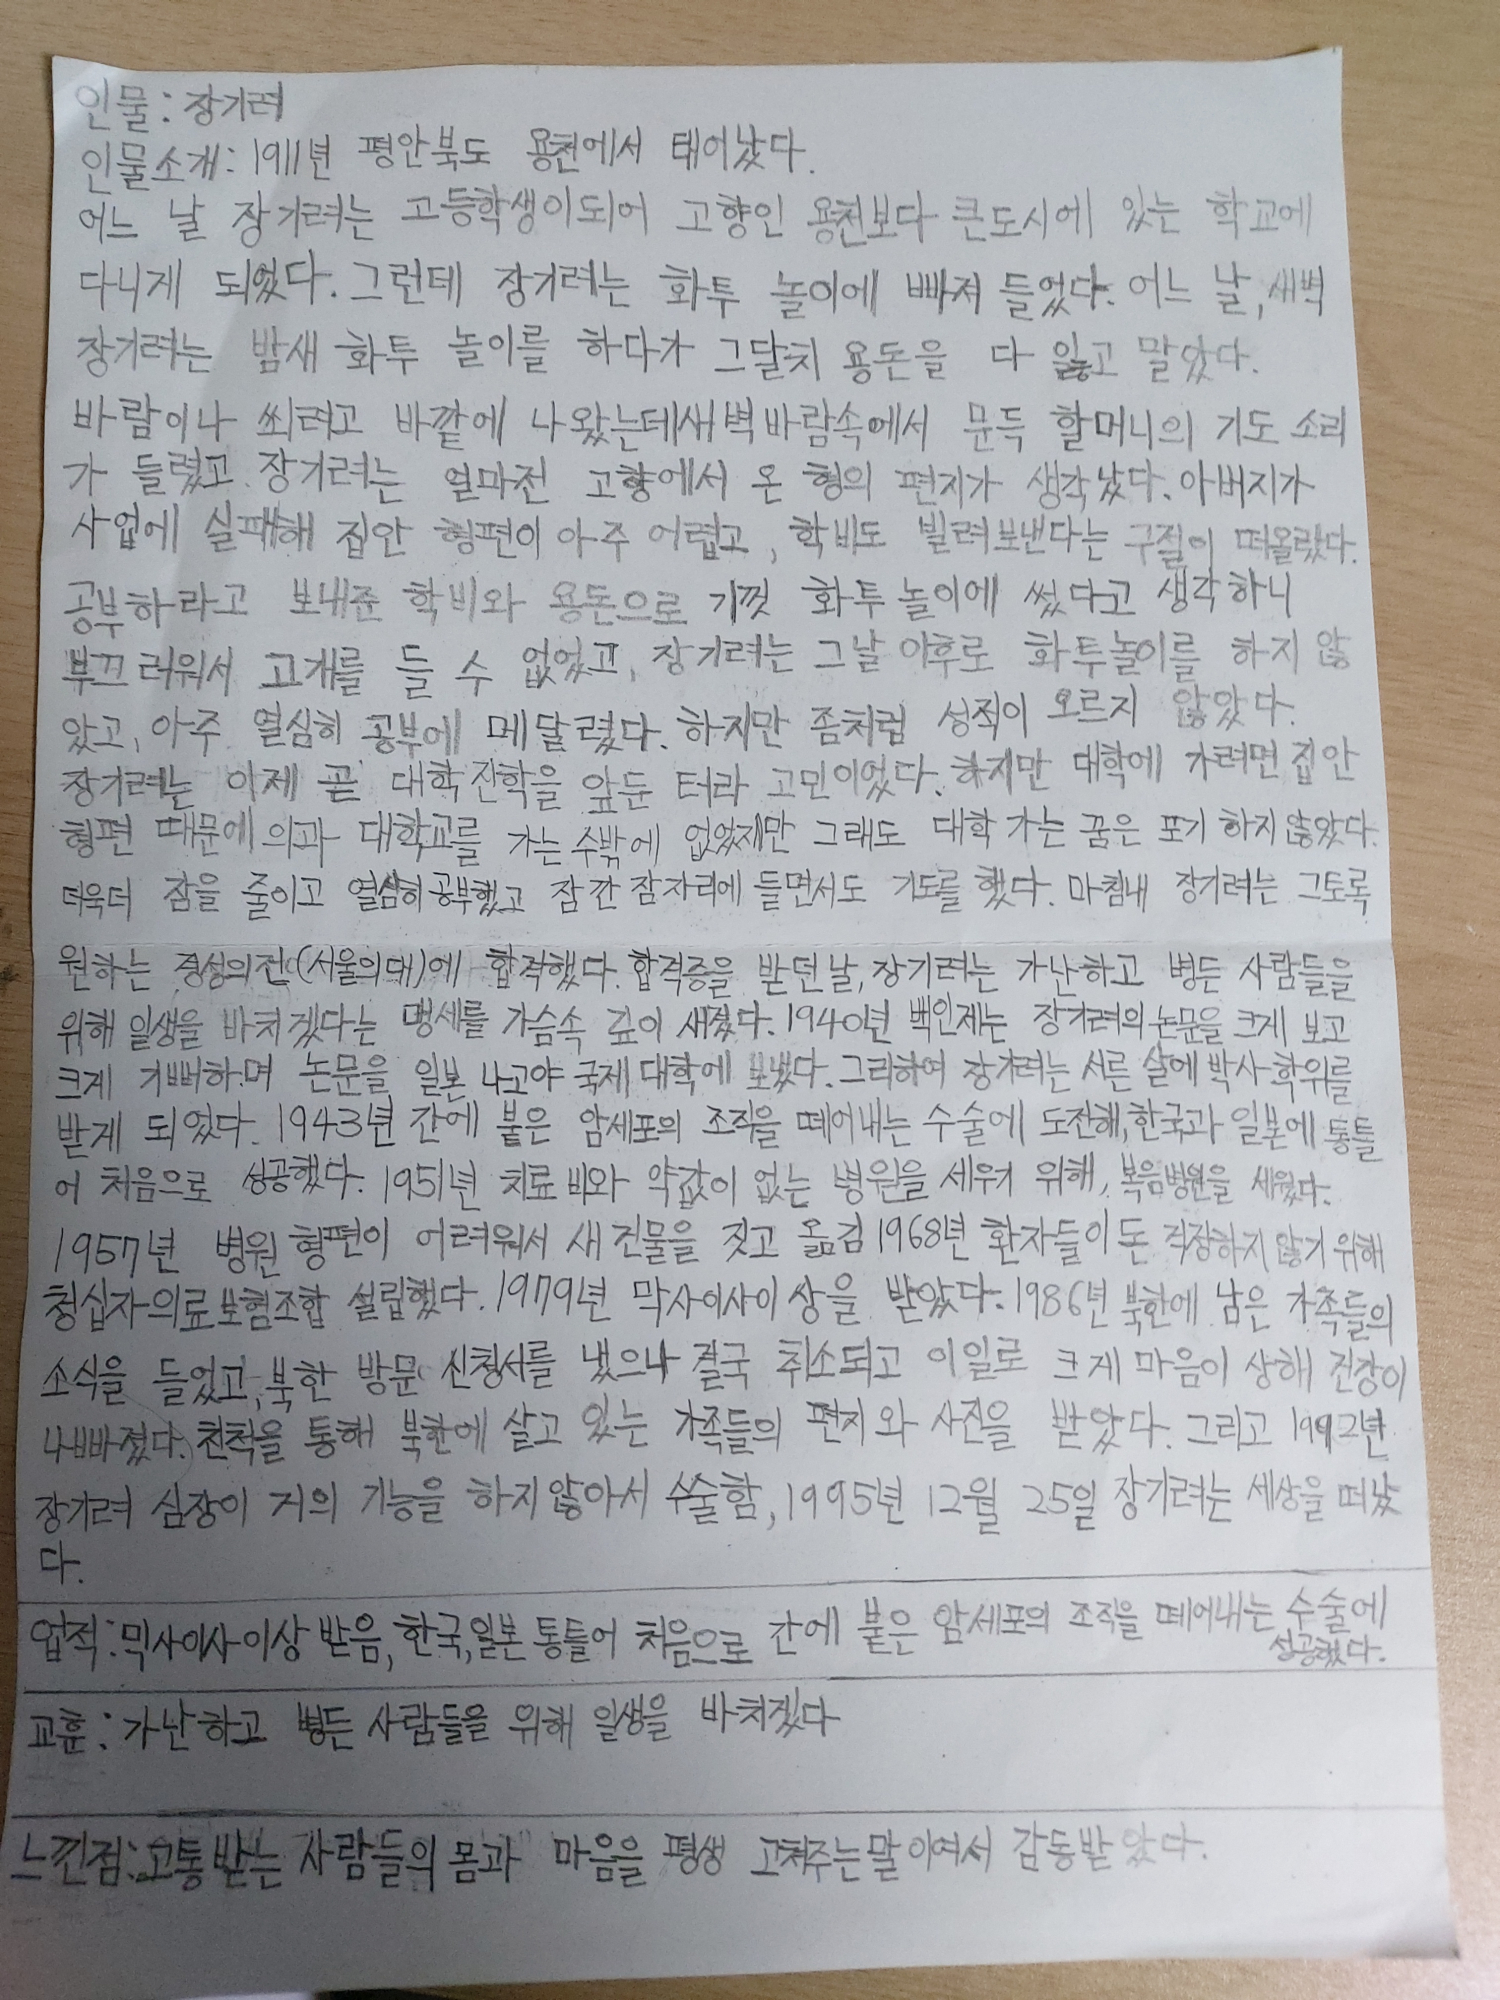 인물: 장기려
인물소개: 1911년 평안북도 용천에서 태어났다.
어느 날 장기려는 고등학생이되어 고향인 용천보다 큰도시에 있는 학교에
다니게 되었다. 그런데 장기려는 화투 놀이에 빠져 들었다. 어느 날, 새벽
장기려는 밤새 화투 놀이를 하다가 그달치 용돈을 다 잃고 말았다.
바람이나 쐬려고 바깥에 나왔는데새벽바람속에서 문득 할머니의 기도 소리
가 들렸고 장기려는 얼마전 고향에서 온 형의 편지가 생각났다. 아버지가
사업에 실패해 집안 형편이 아주 어렵고, 학비도 빌려보낸다는 구절이 떠올랐다.
공부하라고 보내준 학비와 용돈으로 기껏 화투놀이에 썼다고 생각하니
부끄러워서 고개를 들 수 없었고, 장기려는 그날 이후로 화투놀이를 하지 않
았고, 아주 열심히 공부에 메달렸다. 하지만 좀처럼 성적이 오르지 않았다.
장기려는 이제 곧 대학진학을 앞둔 터라 고민이었다. 하지만 대학에 가려면 집안
형편 때문에 의과 대학교를 가는 수밖에 없었지만 그래도 대학 가는 꿈은 포기 하지않았다.
더욱더 잠을 줄이고 열심히공부했고 잠깐 잠자리에 들면서도 기도를 했다. 마침내 장기려는 그토록
원하는 경성의전(서울의대)에 합격했다. 합격증을 받던날, 장기려는 가난하고 병든 사람들을
위해 일생을 바치겠다는 맹세를 가슴속 깊이 새겼다. 1940년 백인제는 장기려의 논문을 크게 보고
크게 기뻐하며 논문을 일본 나고야 국제 대학에 보냈다. 그리하여 장기려는 서른 살에 박사 학위를
받게 되었다. 1943년 간에 붙은 암세포의 조직을 떼어내는 수술에 도전해, 한국과 일본에 통틀
어 처음으로 성공했다. 1951년 치료비와 약값이 없는 병원을 세우기 위해, 복음병원을 세웠다.
1957년 병원 형편이 어려워서 새 건물을 짓고 옮김 1968년 환자들이 돈 걱정하지 않기 위해
청십자의료보험조합 설립했다. 1979년 막사이사이 상을 받았다. 1986년 북한에 남은 가족들의
소식을 들었고, 북한 방문 신청서를 냈으나 결국 취소되고 이일로 크게 마음이 상해 건강이
나빠졌다. 친척을 통해 북한에 살고 있는 가족들의 편지와 사진을 받았다. 그리고 1992년
장기려 심장이 거의 기능을 하지않아서 수술함, 1995년 12월 25일 장기려는 세상을 떠났
다.
업적: 막사이사이상 받음, 한국,일본 통틀어 처음으로 간에 붙은 암세포의 조직을 떼어내는 수술에
성공했다.
교훈: 가난하고 병든 사람들을 위해 일생을 바치겠다
느낀점: 고통받는 사람들의 몸과 마음을 평생 고쳐주는말이여서 감동받았다.